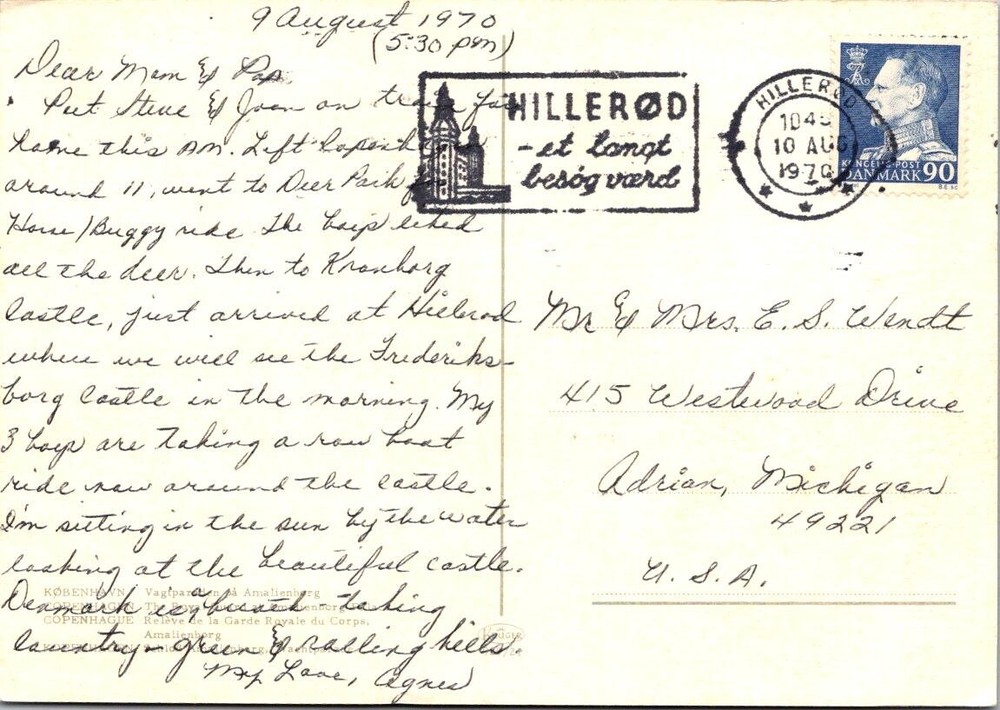 9 August 1970
(5:30 pm)
Dear Mom & Pop,
Put Steve & Joan on train for
home this AM. Left Copenh
around 11, went to Deer Park for
Horse/Buggy ride. The boys liked
all the deer. Then to Kronborg
Castle, just arrived at Hillerod
where we will see the Frederiks-
borg Castle in the morning. My
3 boys are taking a row boat
ride now around the castle.
I'm sitting in the sun by the water
looking at the beautiful castle.
Denmark is a breath-taking
country - green & rolling hills
My Love, Agnes
HILLERØD
- et langt
besøg værd
HILLERØD
10 AUG
1970
KONGELIG POST
DANMARK 90
Mr & Mrs. E. S. Wendt
415 Westwood Drive
Adrian, Michigan
49221
U. S. A.
KØBENHAVN Vagtparaden på Amalienborg
COPENHAGEN The Amalienborg
COPENHAGUE Relève de la Garde Royale du Corps,
Amalienborg
Amalienborg,